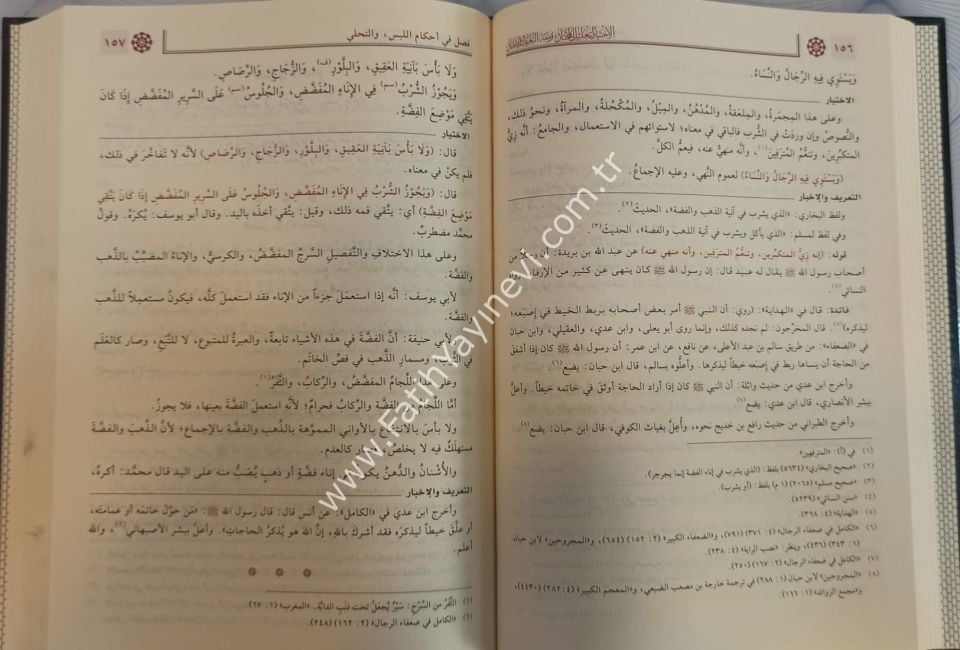 ١٥٦
وَيَسْتَوِي فِيهِ الرِّجَالُ وَالنِّسَاءُ.
الاختيار
وعلى هذا المِجمَرةُ، والمِلعَقةُ، والمُدْهُنُ، والمِيْلُ، والمُكْحُلةُ، والمرآةُ، ونحوُ ذلك،
والنُّصوصُ وإن وردَتْ في الشُّرب فالباقي في معناه؛ لاستوائهم في الاستعمال، والجامعُ: أنَّه زِيُّ
المتكبِّرين، وتنعُّمُ المُترَفين(١)، وأنَّه منهيٌّ عنه، فيعمُّ الكلَّ.
(وَيَسْتَوِي فِيهِ الرِّجَالُ وَالنِّسَاءُ) لعموم النَّهي، وعليه الإجماعُ.
التعريف والإخبار
ولفظ البخاري: «الذي يشرب في آنية الذهب والفضة»، الحديثَ(٢).
وفي لفظ لمسلم: «الذي يأكل ويشرب في آنية الذهب والفضة»، الحديثَ(٣).
قوله: (إنه زِيُّ المتكبِّرين، وتنعُّم المترَفين، وأنه منهي عنه) عن عبد الله بن بريدة: أن رجلاً من
أصحاب رسول الله ﷺ يقال له عبيد قال: إن رسول الله ﷺ كان ينهى عن كثير من الإرفاه. رواه
النسائي(٤).
فائدة: قال في «الهداية»: (روي: أن النبي ﷺ أمر بعض أصحابه بربط الخيط في إصبَعه؛
ليذكره)(٥). قال المخرِّجون: لم نجده كذلك، وإنما روى أبو يعلى، وابن عدي، والعقيلي، وابن حبان
في «الضعفاء»: من طريق سالم بن عبد الأعلى، عن نافع، عن ابن عمر: أن رسول الله ﷺ كان إذا أشفق
من الحاجة أن ينساها ربط في إصبَعه خيطاً ليذكرها. وأعلُّوه بسالم، قال ابن حبان: يضع(٦).
وأخرج ابن عدي من حديث واثلة: أن النبي ﷺ كان إذا أراد الحاجة أوثق في خاتمه خيطاً. وأعلَّ
ببشر الأنصاري، قال ابن عدي: يضع(٧).
وأخرج الطبراني من حديث رافع بن خديج نحوه، وأُعِلَّ بغياث الكوفي، قال ابن حبان: يضع(٨).
(١) في (أ): «المترفهين».
(٢) «صحيح البخاري» (٥٦٣٤) بلفظ: (الذي يشرب في إناء الفضة إنما يجرجر).
(٣) «صحيح مسلم» (٢٠٦٥) (١ م) بلفظ: (أو يشرب).
(٤) «سنن النسائي» (٥٢٣٩).
(٥) «الهداية» (٤: ٣٦٨).
(٦) «الكامل في ضعفاء الرجال» (٤: ٣٧١) (٧٩١)، و«الضعفاء الكبير» (٢: ١٥٢) (٦٥٤)، و«المجروحين» لابن حبان
(١: ٣٤٣) (٤٣٦)، وينظر: «نصب الراية» (٤: ٢٣٨).
(٧) «الكامل في ضعفاء الرجال» (٢: ١٦٧) (٢٥٠).
(٨) «المجروحين» لابن حبان (١: ٢٨٨) في ترجمة خارجة بن مصعب الضبعي، و«المعجم الكبير» (٤: ٢٨٢) (٤٤٣٠)،
و«مجمع الزوائد» (١: ١٦٦).
فصل في أحكام اللبس، والتحلي ١٥٧
وَلَا بَأْسَ بِآنِيَةِ العَقِيقِ، وَالبِلَّوْرِ(ف)، وَالزُّجَاجِ، وَالرَّصَاصِ.
وَيَجُوزُ الشُّرْبُ(سم) فِي الإِنَاءِ المُفَضَّضِ، وَالجُلُوسُ(سم) عَلَى السَّرِيرِ المُفَضَّضِ إِذَا كَانَ
يَتَّقِي مَوْضِعَ الفِضَّةِ.
الاختيار
قال: (وَلَا بَأْسَ بِآنِيَةِ العَقِيقِ، وَالبِلَّوْرِ، وَالزُّجَاجِ، وَالرَّصَاصِ) لأنَّه لا تَفاخُرَ في ذلك،
فلم يكنْ في معناه.
قال: (وَيَجُوزُ الشُّرْبُ فِي الإِنَاءِ المُفَضَّضِ، وَالجُلُوسُ عَلَى السَّرِيرِ المُفَضَّضِ إِذَا كَانَ يَتَّقِي
مَوْضِعَ الفِضَّةِ) أي: يتَّقي فمه ذلك، وقيل: يتَّقي أخذَه باليد. وقال أبو يوسف: يُكرَهُ. وقولُ
محمَّد مضطربٌ.
وعلى هذا الاختلافِ والتَّفصيلِ السَّرجُ المفضَّضُ، والكرسيُّ، والإناءُ المضبَّبُ بالذَّهب
والفضَّة.
لأبي يوسف: أنَّه إذا استعمَلَ جزءاً من الإناء فقد استعملَ كلَّه، فيكونُ مستعمِلاً للذَّهب
والفضَّة.
لأبي حنيفة: أنَّ الفضَّةَ في هذه الأشياء تابعةٌ، والعبرةُ للمتبوع، لا للتَّبَع، وصار كالعَلَم
في الثَّوب، ومسمارِ الذَّهب في فصِّ الخاتَم.
وعلى هذا اللِّجامُ المفضَّضُ، والرِّكابُ، والثَّفَرُ(١).
أمَّا اللِّجامُ من الفضَّة والرِّكابُ فحرامٌ؛ لأنَّه استعملَ الفضَّةَ بعينها، فلا يجوزُ.
ولا بأسَ بالانتفاع بالأواني المموَّهة بالذَّهب والفضَّة بالإجماع؛ لأنَّ الذَّهبَ والفضَّةَ
مستهلَكٌ فيه لا يخلُصُ، فصار كالعدم.
والأُشْنانُ والدُّهنُ يكونُ في إناء فضَّةٍ أو ذهبٍ يُصَبُّ منه على اليد قال محمَّد: أكرهُ،
التعريف والإخبار
وأخرج ابن عدي في «الكامل»: عن أنس قال: قال رسول الله ﷺ: «مَن حوَّل خاتمَه أو عمامتَه،
أو علَّق خيطاً ليذكرَه فقد أشرك بالله، إنَّ الله هو يُذكرُ الحاجات». وأعلَّ ببشر الأصبهاني(٢)، والله
أعلم.
* * *
(١) الثَّفَرُ من السَّرْج: سَيْرٌ يُجعَلُ تحت ذنَبِ الدابَّة. «المغرب» (١: ٦٧).
(٢) «الكامل في ضعفاء الرجال» (٢: ١٦٢) (٢٤٨).
www.FatihYayinevi.com.tr